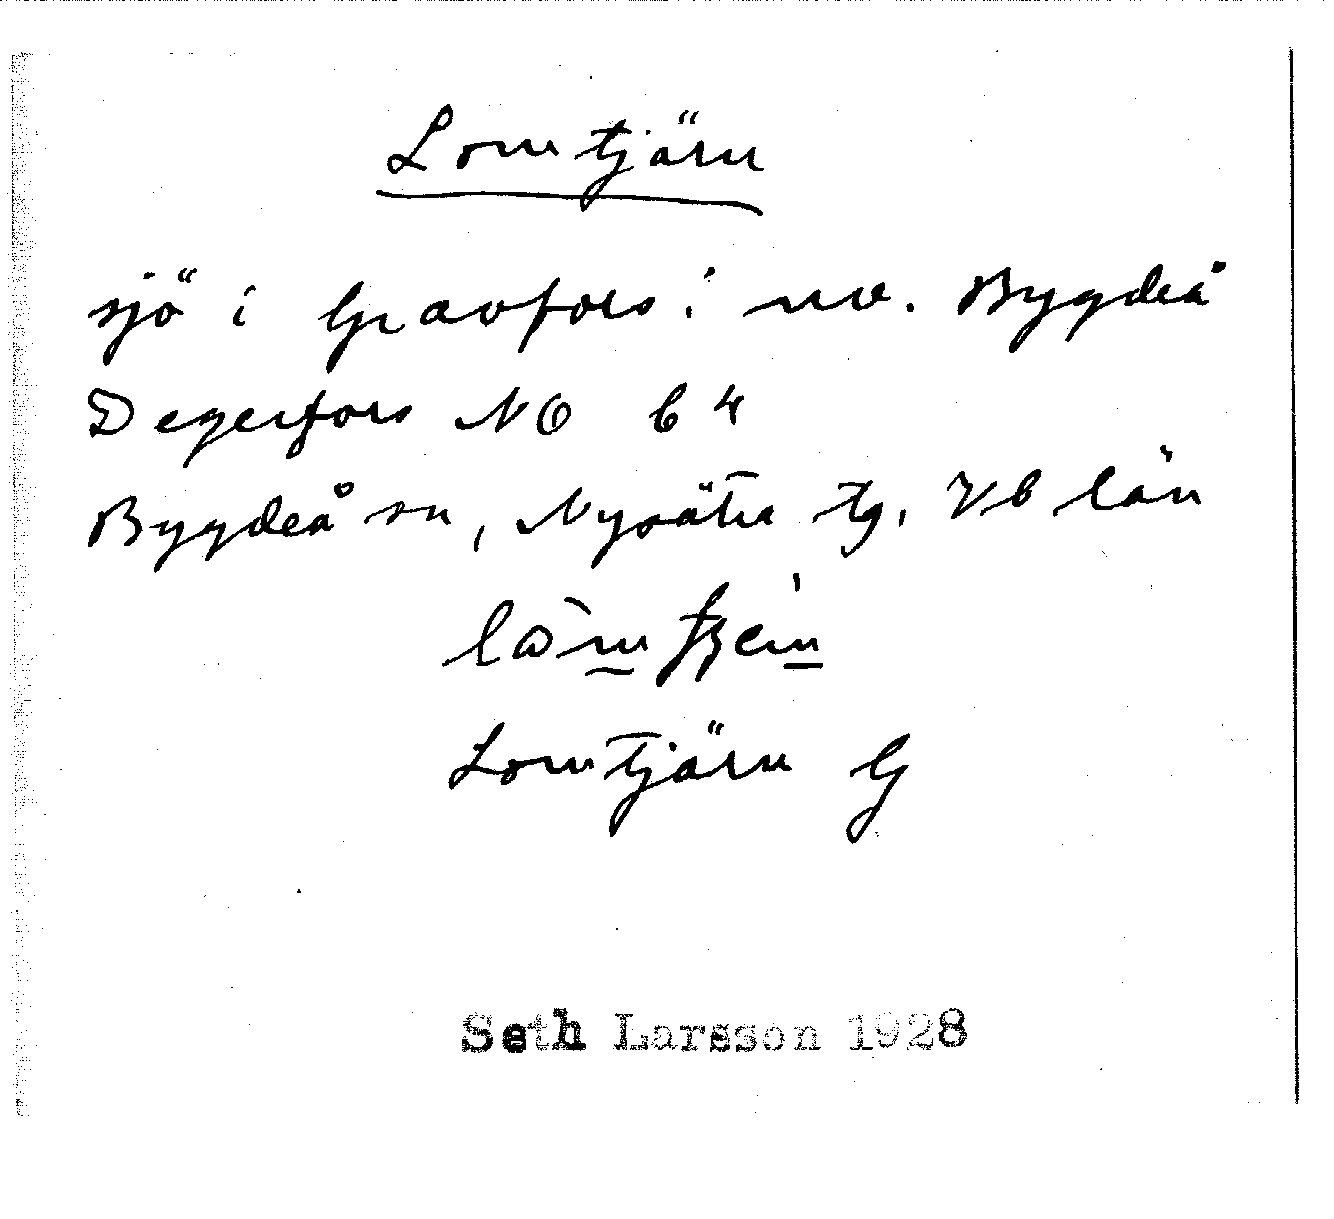 Lomtjärn
sjö i Gravfors i nv. Bygdeå
Degerfors NO b 4
Bygdeå sn, Nysätra tg, Vb län
Lomtjärn G
Seth Larsson 1928